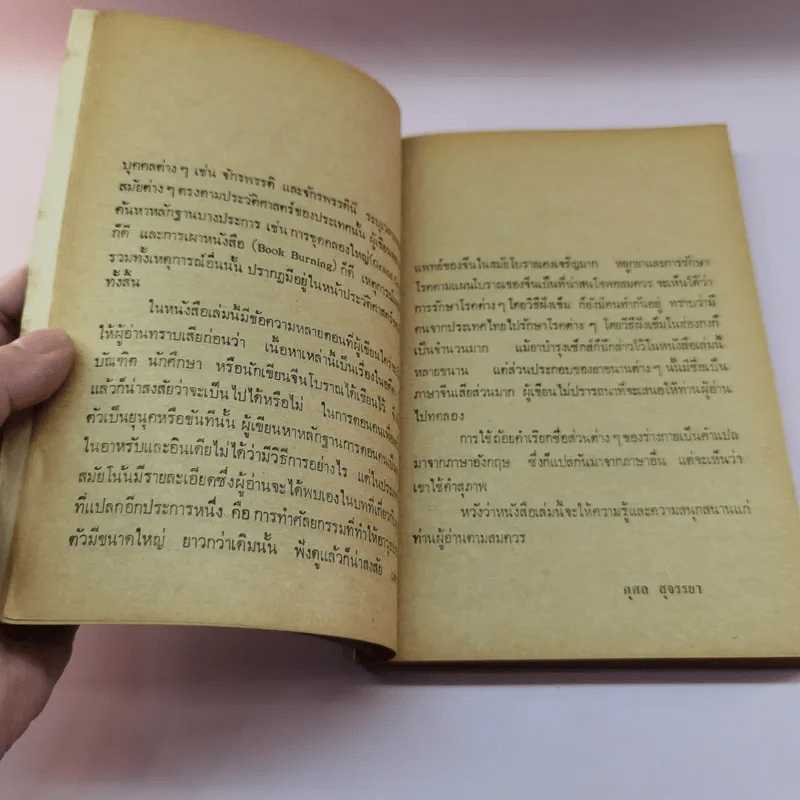 บุคคลต่าง ๆ เช่น จักรพรรดิ และจักรพรรดินี
สมัยต่าง ๆ ตรงตามประวัติศาสตร์ของประเทศนั้น
ค้นหาหลักฐานบางประการ เช่น การขุดคลองใหญ่
ก็ดี และการเผาหนังสือ (Book Burning) ก็ดี
รวมทั้งเหตุการณ์อื่นนั้น ปรากฏมีอยู่ในหน้าประวัติศาสตร์
ทั้งสิ้น
ในหนังสือเล่มนี้มีข้อความหลายตอนที่ผู้เขียน
ให้ผู้อ่านทราบเสียก่อนว่า เนื้อหาเหล่านี้เป็นเรื่อง
บัณฑิต นักศึกษา หรือนักเขียนจีนโบราณได้เขียนไว้
แล้วก็น่าสงสัยว่าจะเป็นไปได้หรือไม่ ในการตอน
ตัวเป็นยุนุคหรือขันทีนั้น ผู้เขียนหาหลักฐานการตอน
ในอาหรับและอินเดียไม่ได้ว่ามีวิธีการอย่างไร แต่
สมัยโน้นมีรายละเอียดซึ่งผู้อ่านจะได้พบเองในบทที่
ที่แปลกอีกประการหนึ่ง คือ การทำศัลยกรรมที่ทำให้
ตัวมีขนาดใหญ่ ยาวกว่าเดิมนั้น ฟังดูแล้วก็น่าสงสัย
แพทย์ของจีนในสมัยโบราณคงเจริญมาก หยูกยาและการรักษา
โรคตามแผนโบราณของจีนเป็นที่น่าสนใจพอสมควร จะเห็นได้ว่า
การรักษาโรคต่าง ๆ โดยวิธีฝังเข็ม ก็ยังมีคนทำกันอยู่ ทราบว่ามี
คนจากประเทศไทยไปรักษาโรคต่าง ๆ โดยวิธีฝังเข็มในฮ่องกงก็
เป็นจำนวนมาก แม้ยาบำรุงเซ็กส์ก็มีกล่าวไว้ในหนังสือเล่มนี้
หลายขนาน แต่ส่วนประกอบของยาขนานต่าง ๆ นั้นมีชื่อเป็น
ภาษาจีนเสียส่วนมาก ผู้เขียนไม่ปรารถนาที่จะเสนอให้ท่านผู้อ่าน
ไปทดลอง
การใช้ถ้อยคำเรียกชื่อส่วนต่าง ๆ ของร่างกายเป็นคำแปล
มาจากภาษาอังกฤษ ซึ่งก็แปลกันมาจากภาษาอื่น แต่จะเห็นว่า
เขาใช้คำสุภาพ
หวังว่าหนังสือเล่มนี้จะให้ความรู้และความสนุกสนานแก่
ท่านผู้อ่านตามสมควร
กุศล สุจรรยา